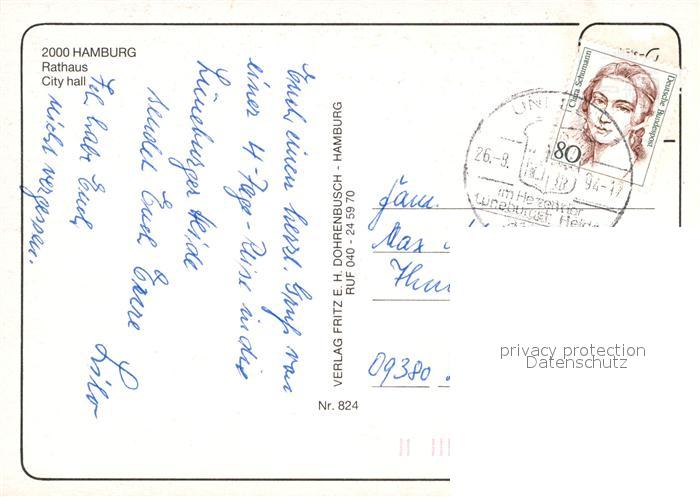 2000 HAMBURG
Rathaus
City hall
Euch einen herzl. Gruß von
einer 4-Tage-Reise in die
Lüneburger Heide
sendet Euch Eure Lilo
Ich habe Euch
nicht vergessen.
VERLAG FRITZ E. H. DOHRENBUSCH - HAMBURG
RUF 040 - 24 59 70
Nr. 824
Clara Schumann
Deutsche Bundespost
80
26.-9. 94-17
im Herzen der
Lüneburger Heide
Fam.
Max
09380
privacy protection
Datenschutz